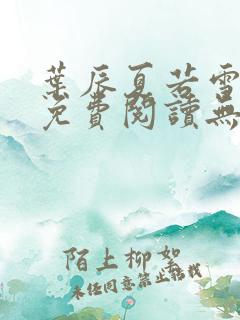 葉辰夏若雪
免費閱讀無
陌上柳絮
未任同意禁止轉載